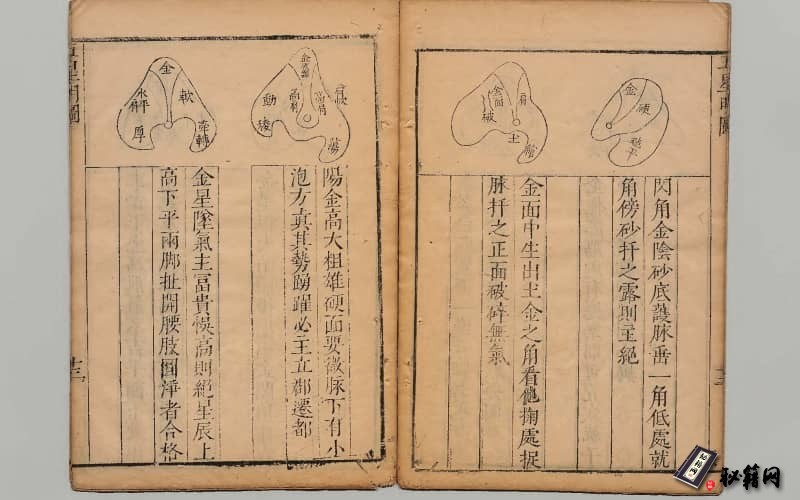 五星明圖
金
硬
閃角金陰砂底護脉垂一角低處就
角傍砂扦之露則主絕
金面
肩
破
土
金面中生出土金之角看他掬處捉
脉扦之正面破碎無氣
肩
軟
高肩
動
陽金高大粗雄硬面要微脉下有小
泡方真其勢踴躍必主立郡遷都
金
軟
水平肩
厚
牽轉
金星墜氣主冨貴悮高則絕星辰上
高下平兩脚扯開腰肢圓淨者合格
秘籍网